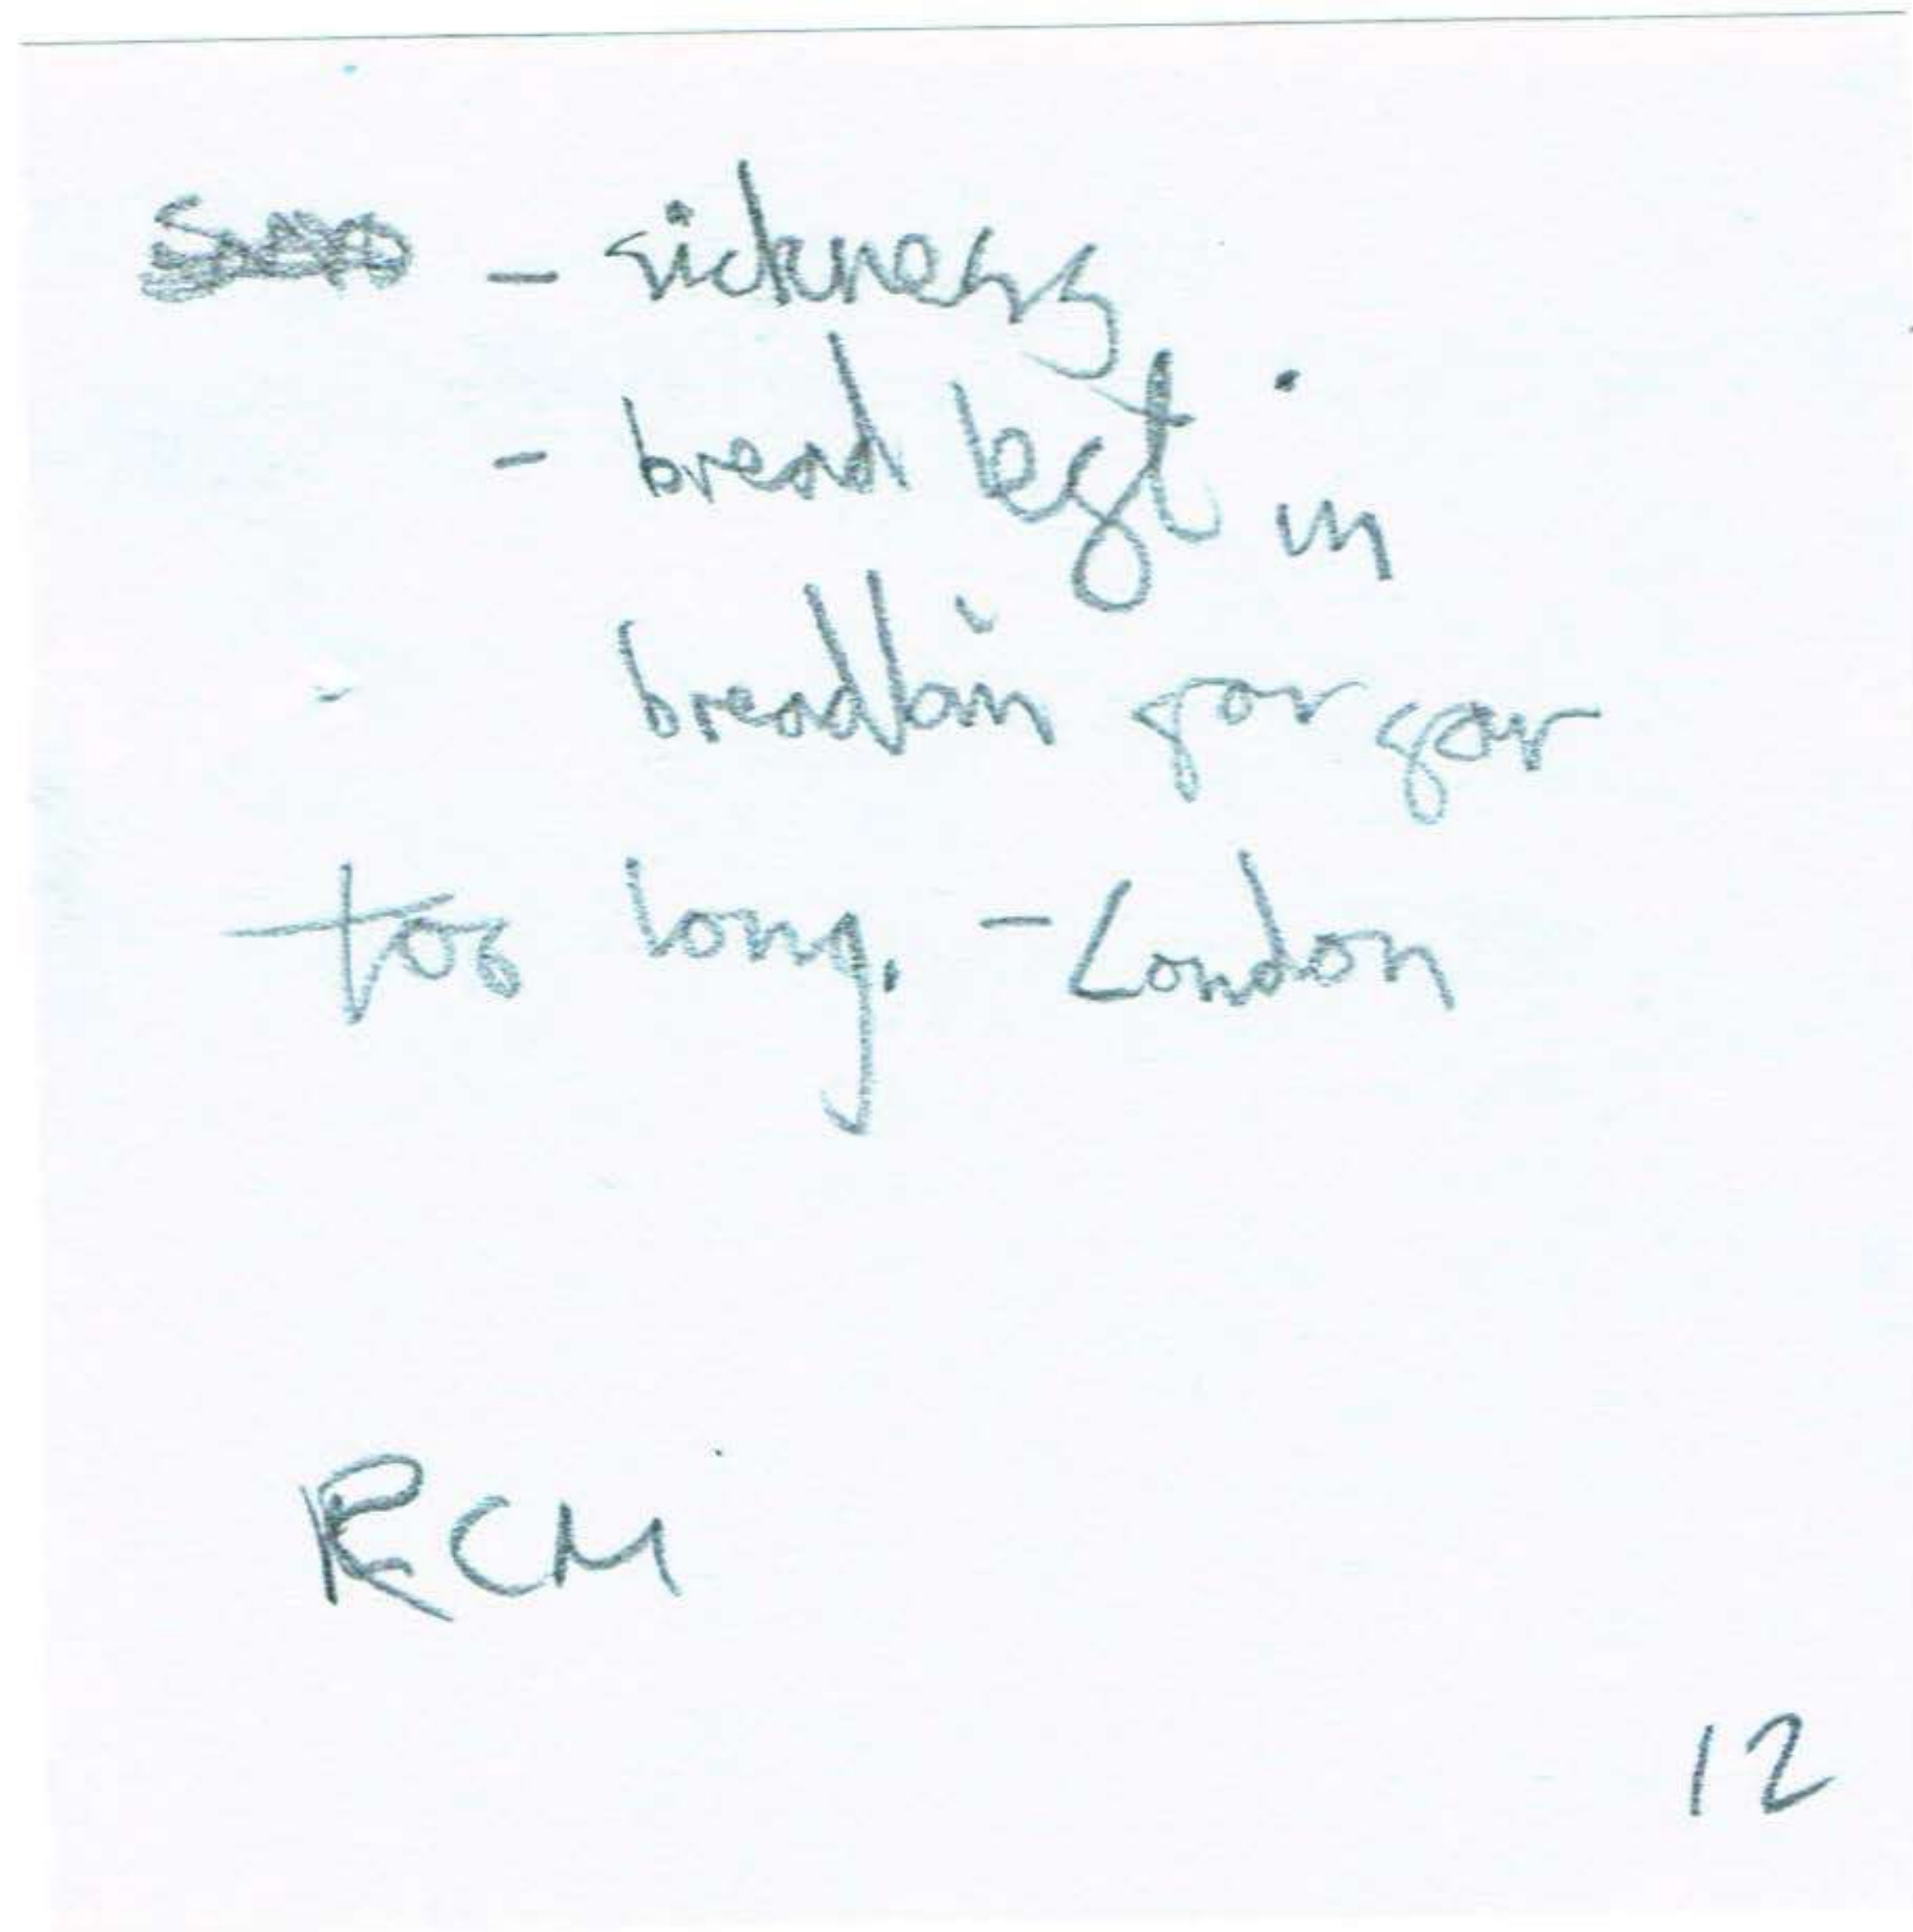 - sickness
- bread left in
breadbin for far
too long. - London
RCM
12